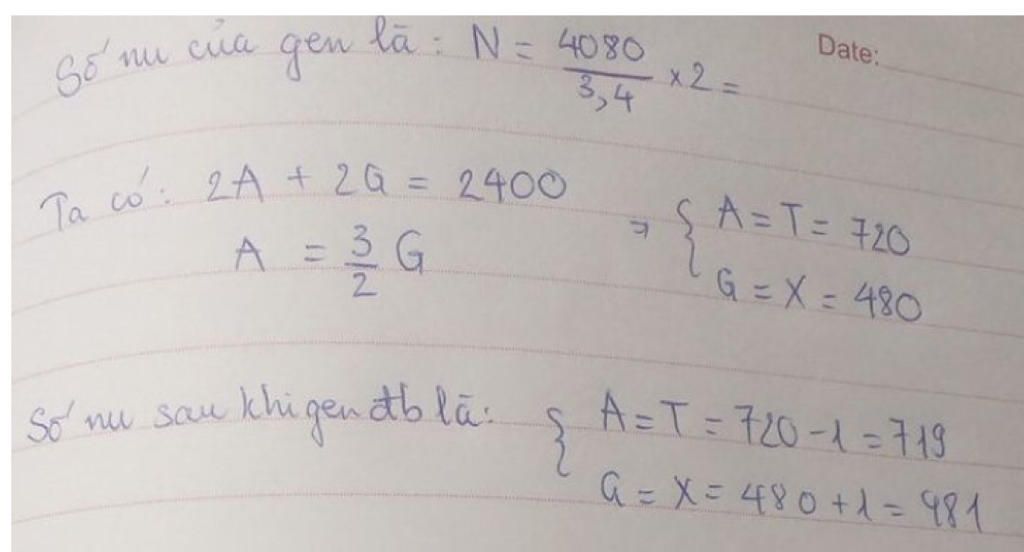 Số nu của gen là: N = 4080/3,4 x 2 =
Date:
Ta có: 2A + 2G = 2400
A = 3/2 G
=> { A = T = 720
G = X = 480
Số nu sau khi gen đb là: { A = T = 720 - 1 = 719
G = X = 480 + 1 = 481